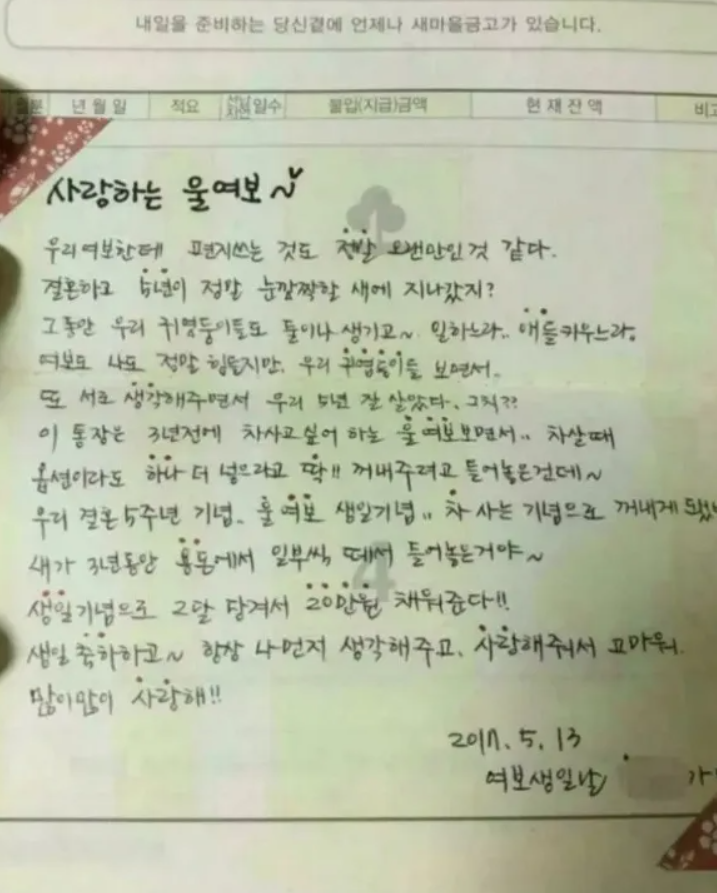 내일을 준비하는 당신곁에 언제나 새마을금고가 있습니다.
년월일 적요 일수 불입(지급)금액 현재잔액 비고
사랑하는 울여보~
우리여보한테 편지쓰는 것도 정말 오랜만인것 같다.
결혼하고 5년이 정말 눈깜짝할 새에 지나갔지?
그동안 우리 귀염둥이들도 둘이나 생기고~ 일하느라.. 애들키우느라,
여보도 나도 정말 힘들지만, 우리 귀염둥이들 보면서..
또 서로 생각해주면서 우리 5년 잘 살았다. 그치??
이 통장은 3년전에 차사고싶어 하는 울여보보면서.. 차살때
옵션이라도 하나 더 넣으라고 딱!! 꺼내주려고 들어놓은건데~
우리 결혼 5주년 기념.. 울 여보 생일기념.. 차 사는 기념으로 꺼내게 됐
내가 3년동안 용돈에서 일부씩 떼서 들어놓은거야~
생일기념으로 2달 당겨서 20만원 채워준다!!
생일 축하하고~ 항상 나먼저 생각해주고, 사랑해줘서 고마워.
많이많이 사랑해!!
2017. 5. 13
여보생일날 가